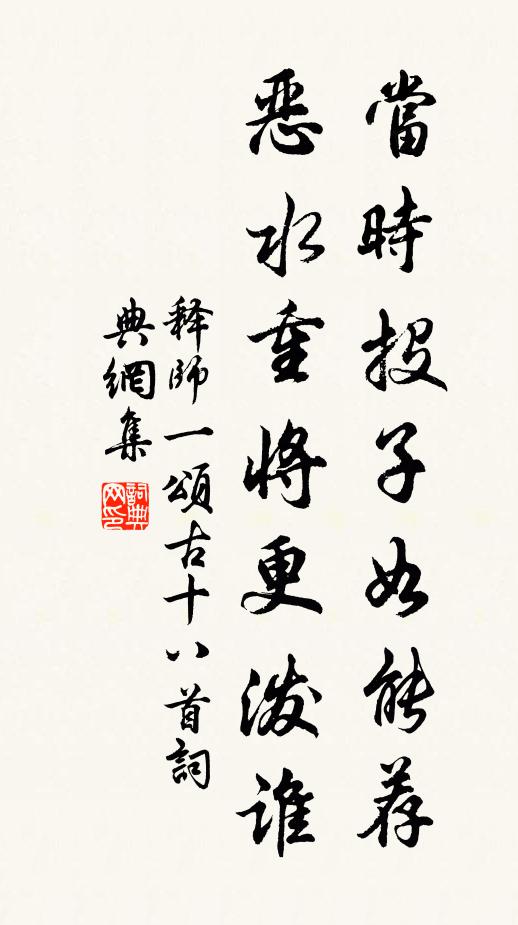 當時投子如能荐
惡水重將更潑誰
释師一頌古十八首詞
典網集
詞典网印